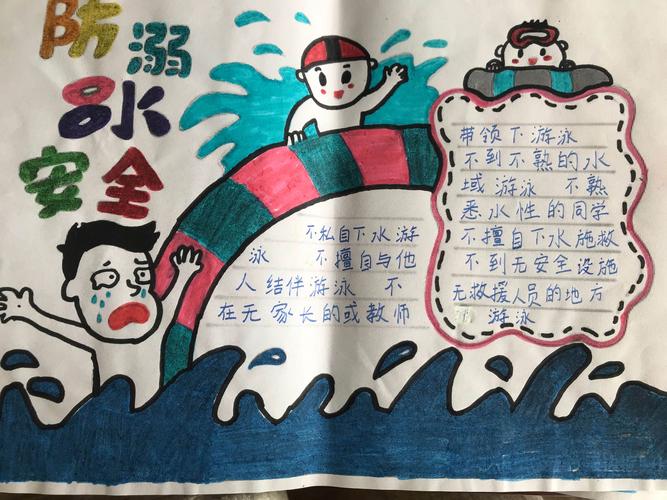 防溺
水
安全
不私自下水游
泳 不擅自与他
人结伴游泳 不
在无家长的或教师
带领下游泳
不到不熟的水
域游泳 不熟
悉水性的同学
不擅自下水施救
不到无安全设施
无救援人员的地方
游泳